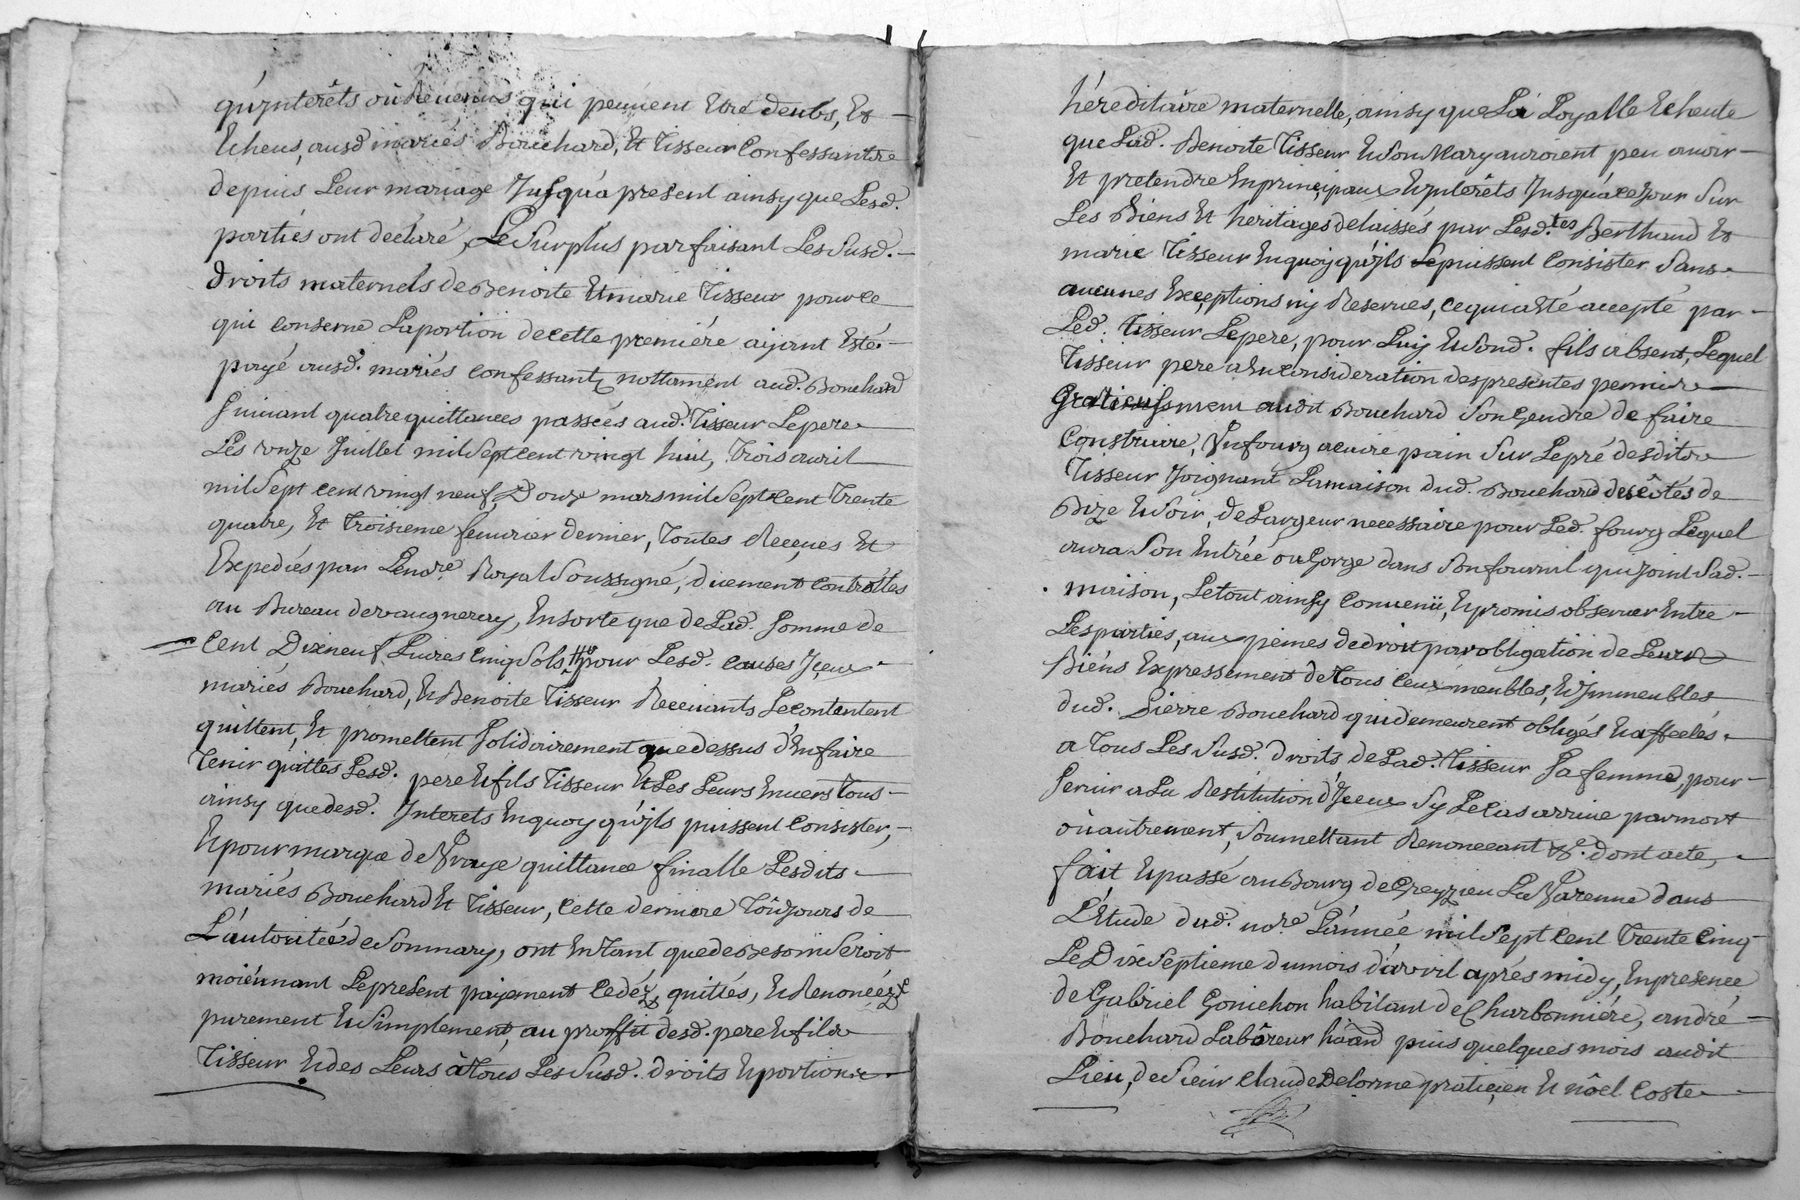 qu'jnterêts ou Revenus qui peuuent Etre deubs, Et
Echeus, ausd mariés Bouchard, Et Tisseur Confessantse
depuis Leur mariage Jusqu'a present ainsy que Lesd.
partiés ont declaré, Le Surplus parfaisant Les Susd.
droits maternels de Benoite Et marie Tisseur pour ce
qui conserne La portion de cette premiére aijant Esté
payé ausd. mariés confessants nottament aud. Bouchard
suiuant quatre quittances passées aud. Tisseur Le pere
Les onze Juillet mil Sept cent vingt huit, Trois auril
mil Sept cent vingt neuf, Douze mars mil Sept cent Trente
quatre, Et Troisieme feuurier dernier, Toutes Receues Et
Expediés par Le nore. Royal Soussigné, duement controllés
au Bureau de vaugneray, En sorte que de Lad. somme de
Cent Dixneuf Liures Cinq Sols pour Lesd. causes Jceux
mariés Bouchard, Et Benoite Tisseur Receuants se contentent
quittent, Et promettent solidairement que dessus d'En faire
Tenir quittes Lesd. pere Et fils Tisseur Et Les Leurs Enuers Tous
ainsy que desd. Interets En quoy qu'ijls puissent Consister,
Et pour marque de Vraye quittance finalle Lesdits
mariés Bouchard Et Tisseur, cette derniere Toûjours de
L'autoritée de Son mary, ont En Tant que de Besoin Seroit
moiénnant Le present paijement cedéz, quittés, Et Renoncéz
purement Et Simplement, au proffit desd. pere Et fils
Tisseur Et des Leurs à Tous Les Susd. droits Et portion
héreditaire maternelle, ainsy que La Loyalle Echeute
que Lad. Benoite Tisseur Et Son Mary auroient peu auoir
Et pretendre En principaux Et jnterêts Jusqu'à ce jour Sur
Les Biens Et heritages delaissés par Lesd.tes Berthaud Et
marie Tisseur En quoy qu'ijls puissent Consister Sans
aucunes Exceptions nij Reserues, ce qui a Eté accepté par
Led. Tisseur Le pere, pour Luij Et Sond. fils absent, Lequel
Tisseur pere a En consideration des presentes permis
Gratieusement audit Bouchard Son Gendre de faire
Construire, Vn fourg a cuire pain Sur Le pré desdits
Tisseur Joignant La maison dud. Bouchard des côtés de
Bize Et Soir, de Largeur necessaire pour Led. fourg Lequel
aura Son Entréé ou Gorge dans Son fournil qui joint Sad.
maison, Le tout ainsy Conuenü, Et promis obseruer Entre
Les parties, aux peines de droit par obligation de Leurs
Biéns Expressement de Tous Ceux meubles, Et Jmmeubles
dud. Pierre Bouchard qui demeurent obligés Et affectés
a Tous Les Susd. droits de Lad. Tisseur Sa femme, pour
Seruir a La Restitution d'Jceux Sy Le cas arriue par mort
ou autrement, Soumettant Renonceant &c. dont acte,
fait Et passé au Bourg de Greyzieu La Varenne dans
L'Etude dud. nore. L'année mil Sept cent Trente Cinq
Le Dix Septieme du mois d'avril aprés midy, En presence
de Gabriel Gonichon habitant de Charbonniére, andré
Bouchard Laboreur puis quelques mois audit
Lieu, de Sieur Claude Delorme praticien Et nôel Coste